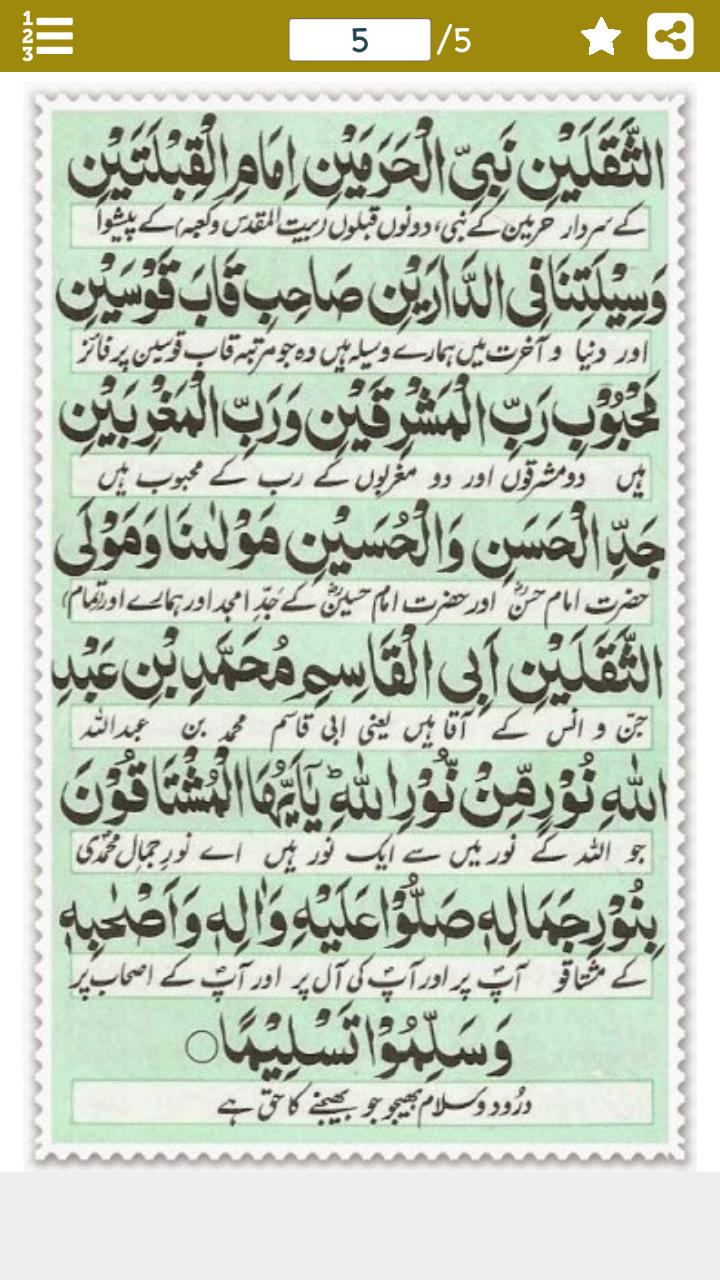 1 2 3
5 /5
الثَّقَلَيْنِ نَبِيِّ الْحَرَمَيْنِ اِمَامِ الْقِبْلَتَيْنِ
کے سردار حرمین کے نبی، دونوں قبلوں (بیت المقدس وکعبہ) کے پیشوا
وَسِيْلَتِنَا فِى الدَّارَيْنِ صَاحِبِ قَابَ قَوْسَيْنِ
اور دنیا و آخرت میں ہمارے وسیلہ ہیں وہ جو مرتبہ قاب قوسین پر فائز
مَحْبُوْبِ رَبِّ الْمَشْرِقَيْنِ وَرَبِّ الْمَغْرِبَيْنِ
ہیں دو مشرقوں اور دو مغربوں کے رب کے محبوب ہیں
جَدِّ الْحَسَنِ وَالْحُسَيْنِ مَوْلٰىنَا وَمَوْلَى
حضرت امام حسنؓ اور حضرت امام حسینؓ کے جَدِّ امجد اور ہمارے اور (تمام)
الثَّقَلَيْنِ اَبِى الْقَاسِمِ مُحَمَّدِ بْنِ عَبْدِ
جنّ و انس کے آقا ہیں یعنی ابی قاسم محمد بن عبداللہ
اللهِ نُوْرٍ مِّنْ نُّوْرِ اللهِ ؕ يَآ اَيُّهَا الْمُشْتَاقُوْنَ
جو اللہ کے نور میں سے ایک نور ہیں اے نورِ جمالِ محمدؐی
بِنُوْرِ جَمَالِهٖ صَلُّوْا عَلَيْهِ وَاٰلِهٖ وَاَصْحٰبِهٖ
کے مشتاقو آپؐ پر اور آپؐ کی آل پر اور آپؐ کے اصحاب پر
وَسَلِّمُوْا تَسْلِيْمًا ○
درُود وسلام بھیجو جو بھیجنے کا حق ہے